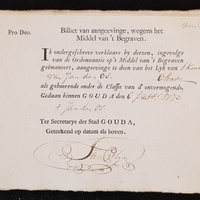 Pro Deo.
Billet van aangeevinge, wegens het
Middel van 't Begraven.
Ik ondergeschreve verklaare by deezen, ingevolge
van de Ordonnantie op 't Middel van 't Begraven
geëmaneert, aangeevinge te doen van het Lyk van
van Jan den Os.
als gehoorende onder de Classis van d' onvermogende,
Gedaan binnen GOUDA, den 6
Jan den Os.
Ter Secretarye der Stad GOUDA,
Geteekend op datum als boven.